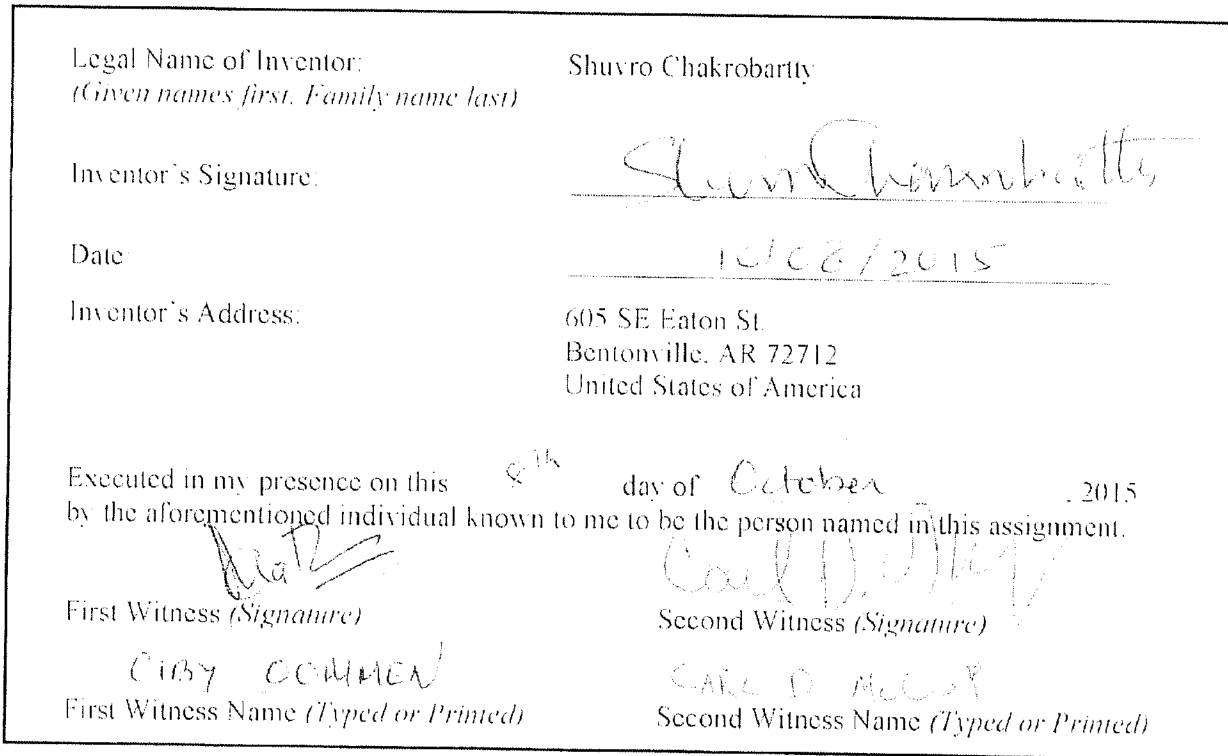 Legal Name of Inventor: Shuvro Chakrobartty
(Given names first, Family name last)
Inventor's Signature: Shuvro Chakrobartty
Date: 10/08/2015
Inventor's Address: 605 SE Eaton St.
Bentonville, AR 72712
United States of America
Executed in my presence on this 8th day of October, 2015
by the aforementioned individual known to me to be the person named in this assignment.
First Witness (Signature) Second Witness (Signature)
CIBY OOMMEN CARL D McCOY
First Witness Name (Typed or Printed) Second Witness Name (Typed or Printed)